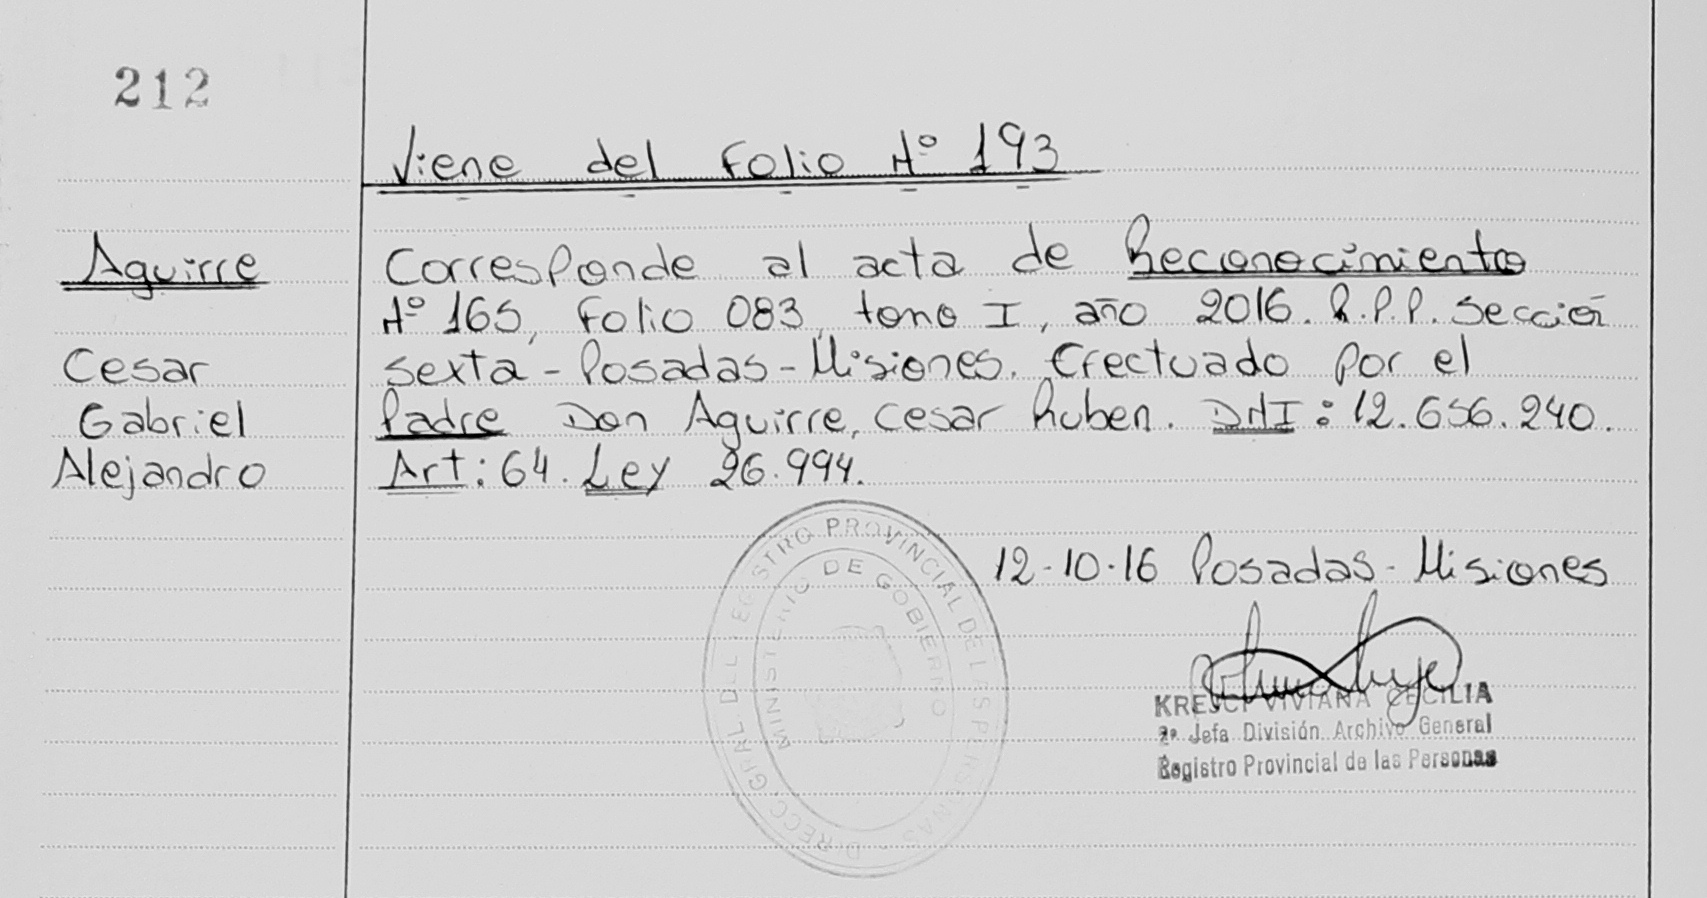 212
Viene del Folio Nº 193
Aguirre
Cesar
Gabriel
Alejandro
Corresponde al acta de Reconocimiento
Nº 165, Folio 083, tomo I, año 2016. R.P.P. Sección
Sexta - Posadas - Misiones. Efectuado por el
Padre Don Aguirre, Cesar Ruben. DNI: 12.656.240.
Art: 64. Ley 26.994.
12-10-16 Posadas - Misiones
DIRECC. GRAL DEL REGISTRO PROVINCIAL DE LAS PERSONAS
MINISTERIO DE GOBIERNO
KRESCI VIVIANA CECILIA
2º Jefa División Archivo General
Registro Provincial de las Personas